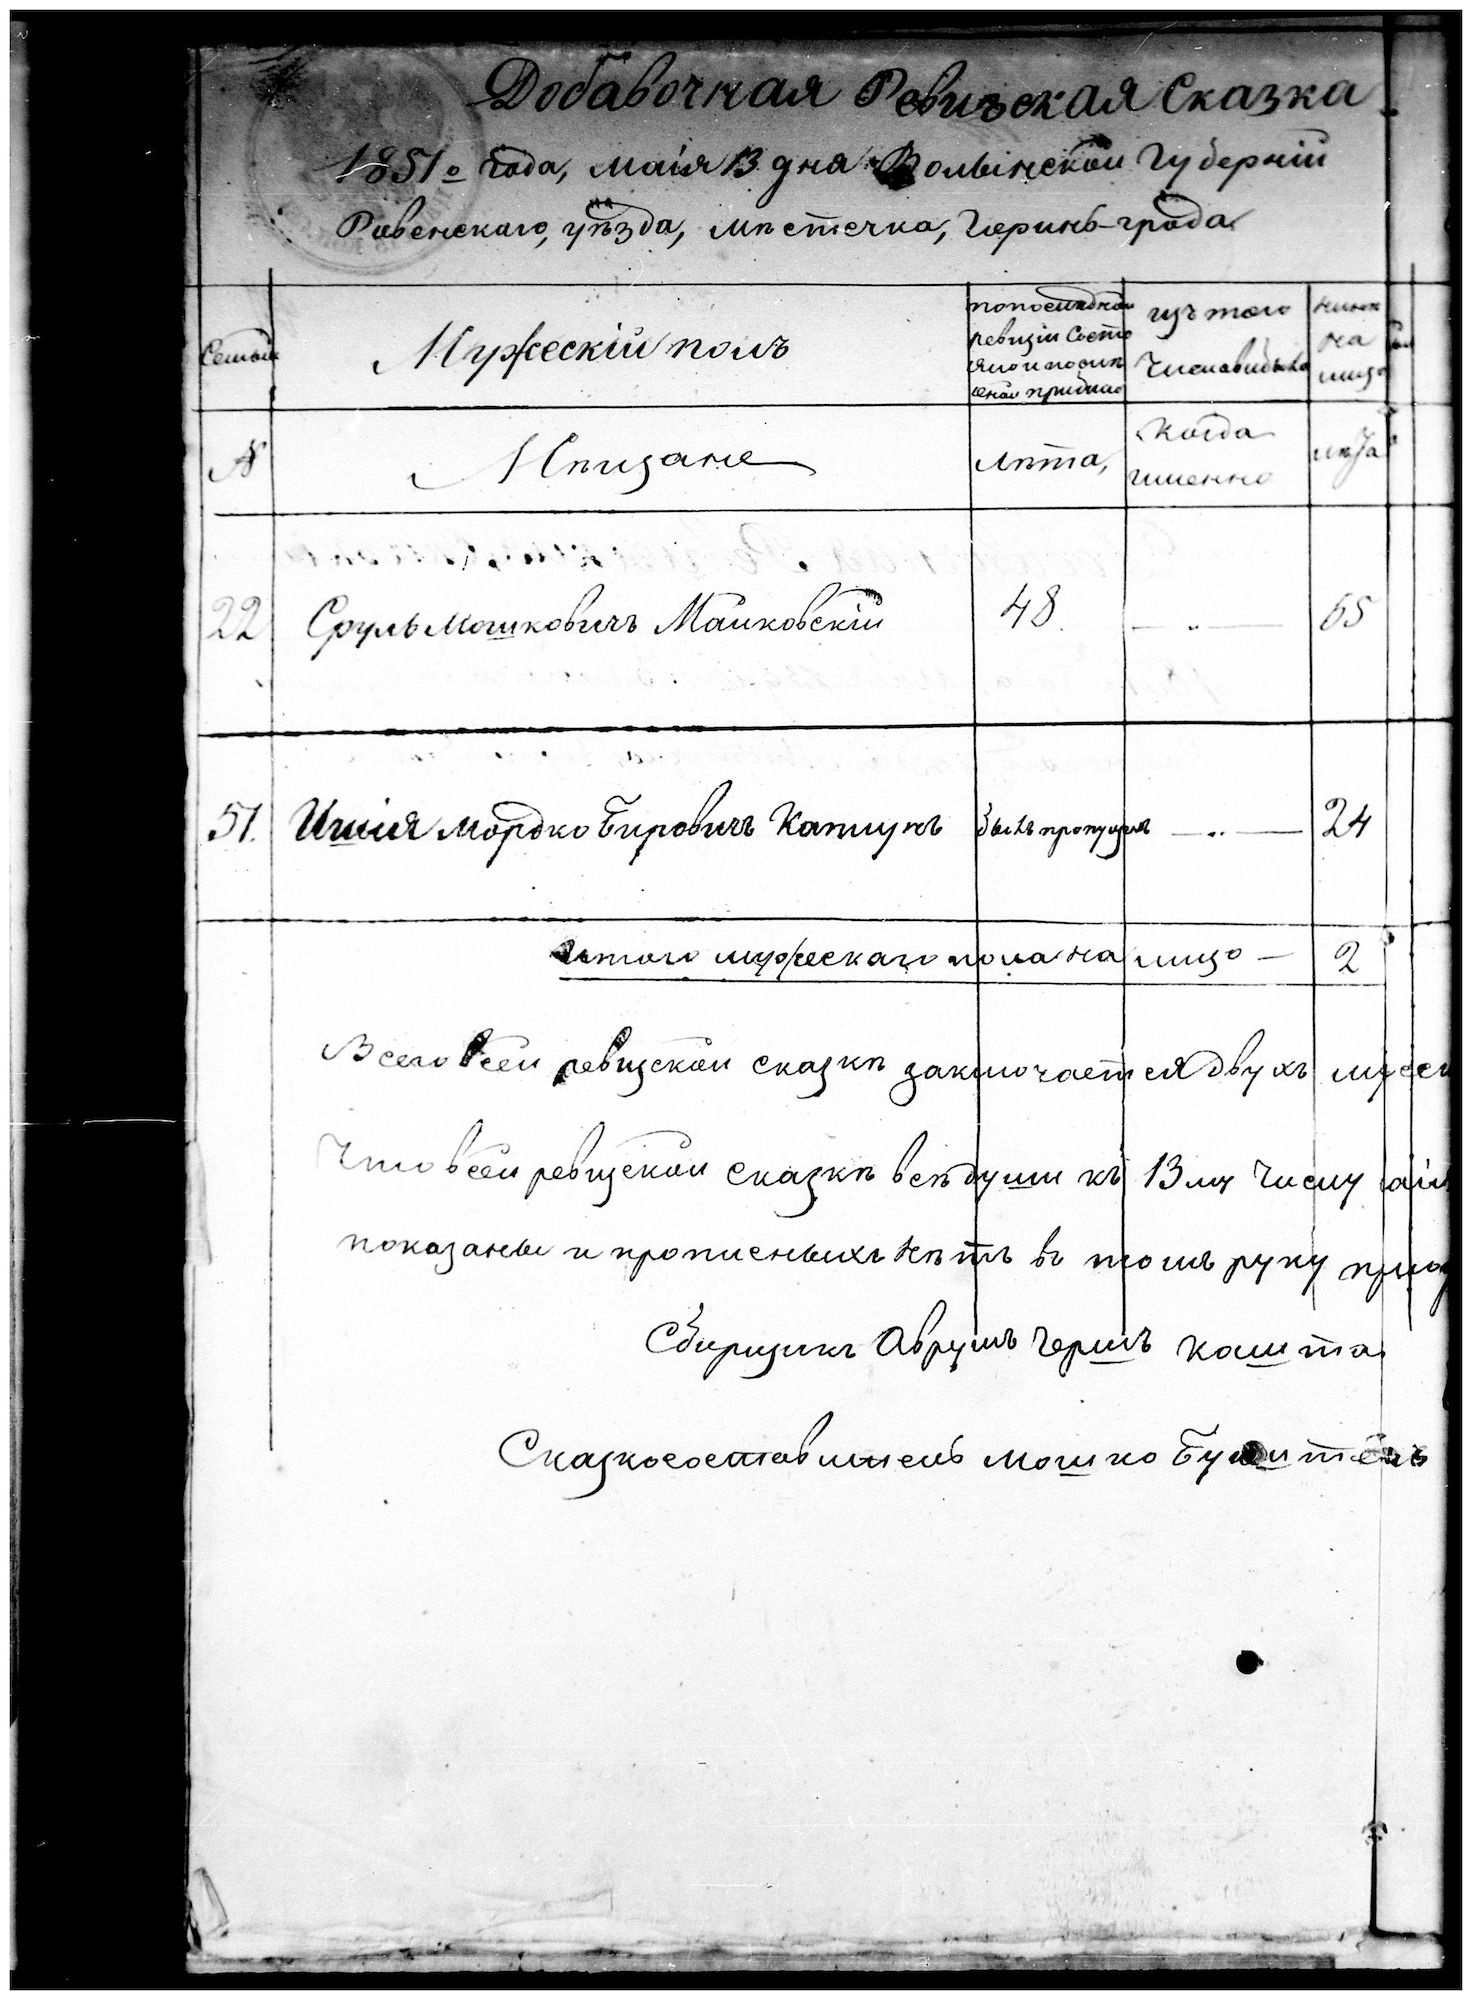 Добавочная Ревиская Сказка
1851го года, маія 13 дня Волынской Губерніи
Ровенскаго, уѣзда, мѣстечка, Горинь-града
Семьи
Мужескій полъ
по последней
ревизіи состо
яло и после
оной прибыло
изъ того
числа выбыло
ныне
на
лицо
№
Мѣщане
лѣта,
когда
именно
лѣта
22 Сруль Мошковичъ Маиковскій 48 — „ — 65
51. Иция Мордко Беровичъ Капшукъ былъ пропущенъ — „ — 24
итого мужескаго пола на лицо — 2
Всего всей ревизской сказкѣ заключается двухъ
Что в сей ревизской сказкѣ всѣ души къ 13му числу
показаны и прописныхъ нѣтъ въ томъ руку
Сборщикъ Аврумъ Гершъ Кашта
Сказкосоставитель Мошко